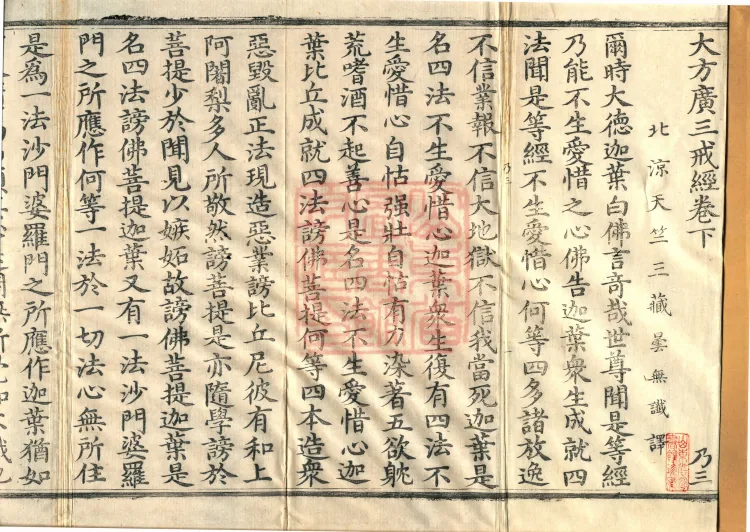 大方廣三戒經卷下 乃三
北涼天竺三藏曇無讖譯
爾時大德迦葉白佛言奇哉世尊聞是等經
乃能不生愛惜之心佛告迦葉衆生成就四
法聞是等經不生愛惜心何等四多諸放逸
不信業報不信大地獄不信我當死迦葉是
名四法不生愛惜心迦葉衆生復有四法不
生愛惜心自怙强壯自怙有力染著五欲躭
荒嗜酒不起善心是名四法不生愛惜心迦
葉比丘成就四法謗佛菩提何等四本造衆
惡毀亂正法現造惡業謗比丘尼彼有和上
阿闍梨多人所敬然謗菩提是亦隨學謗於
菩提少於聞見以嫉妬故謗佛菩提迦葉是
名四法謗佛菩提迦葉又有一法沙門婆羅
門之所應作何等一法於一切法心無所住
是爲一法沙門婆羅門之所應作迦葉猶如